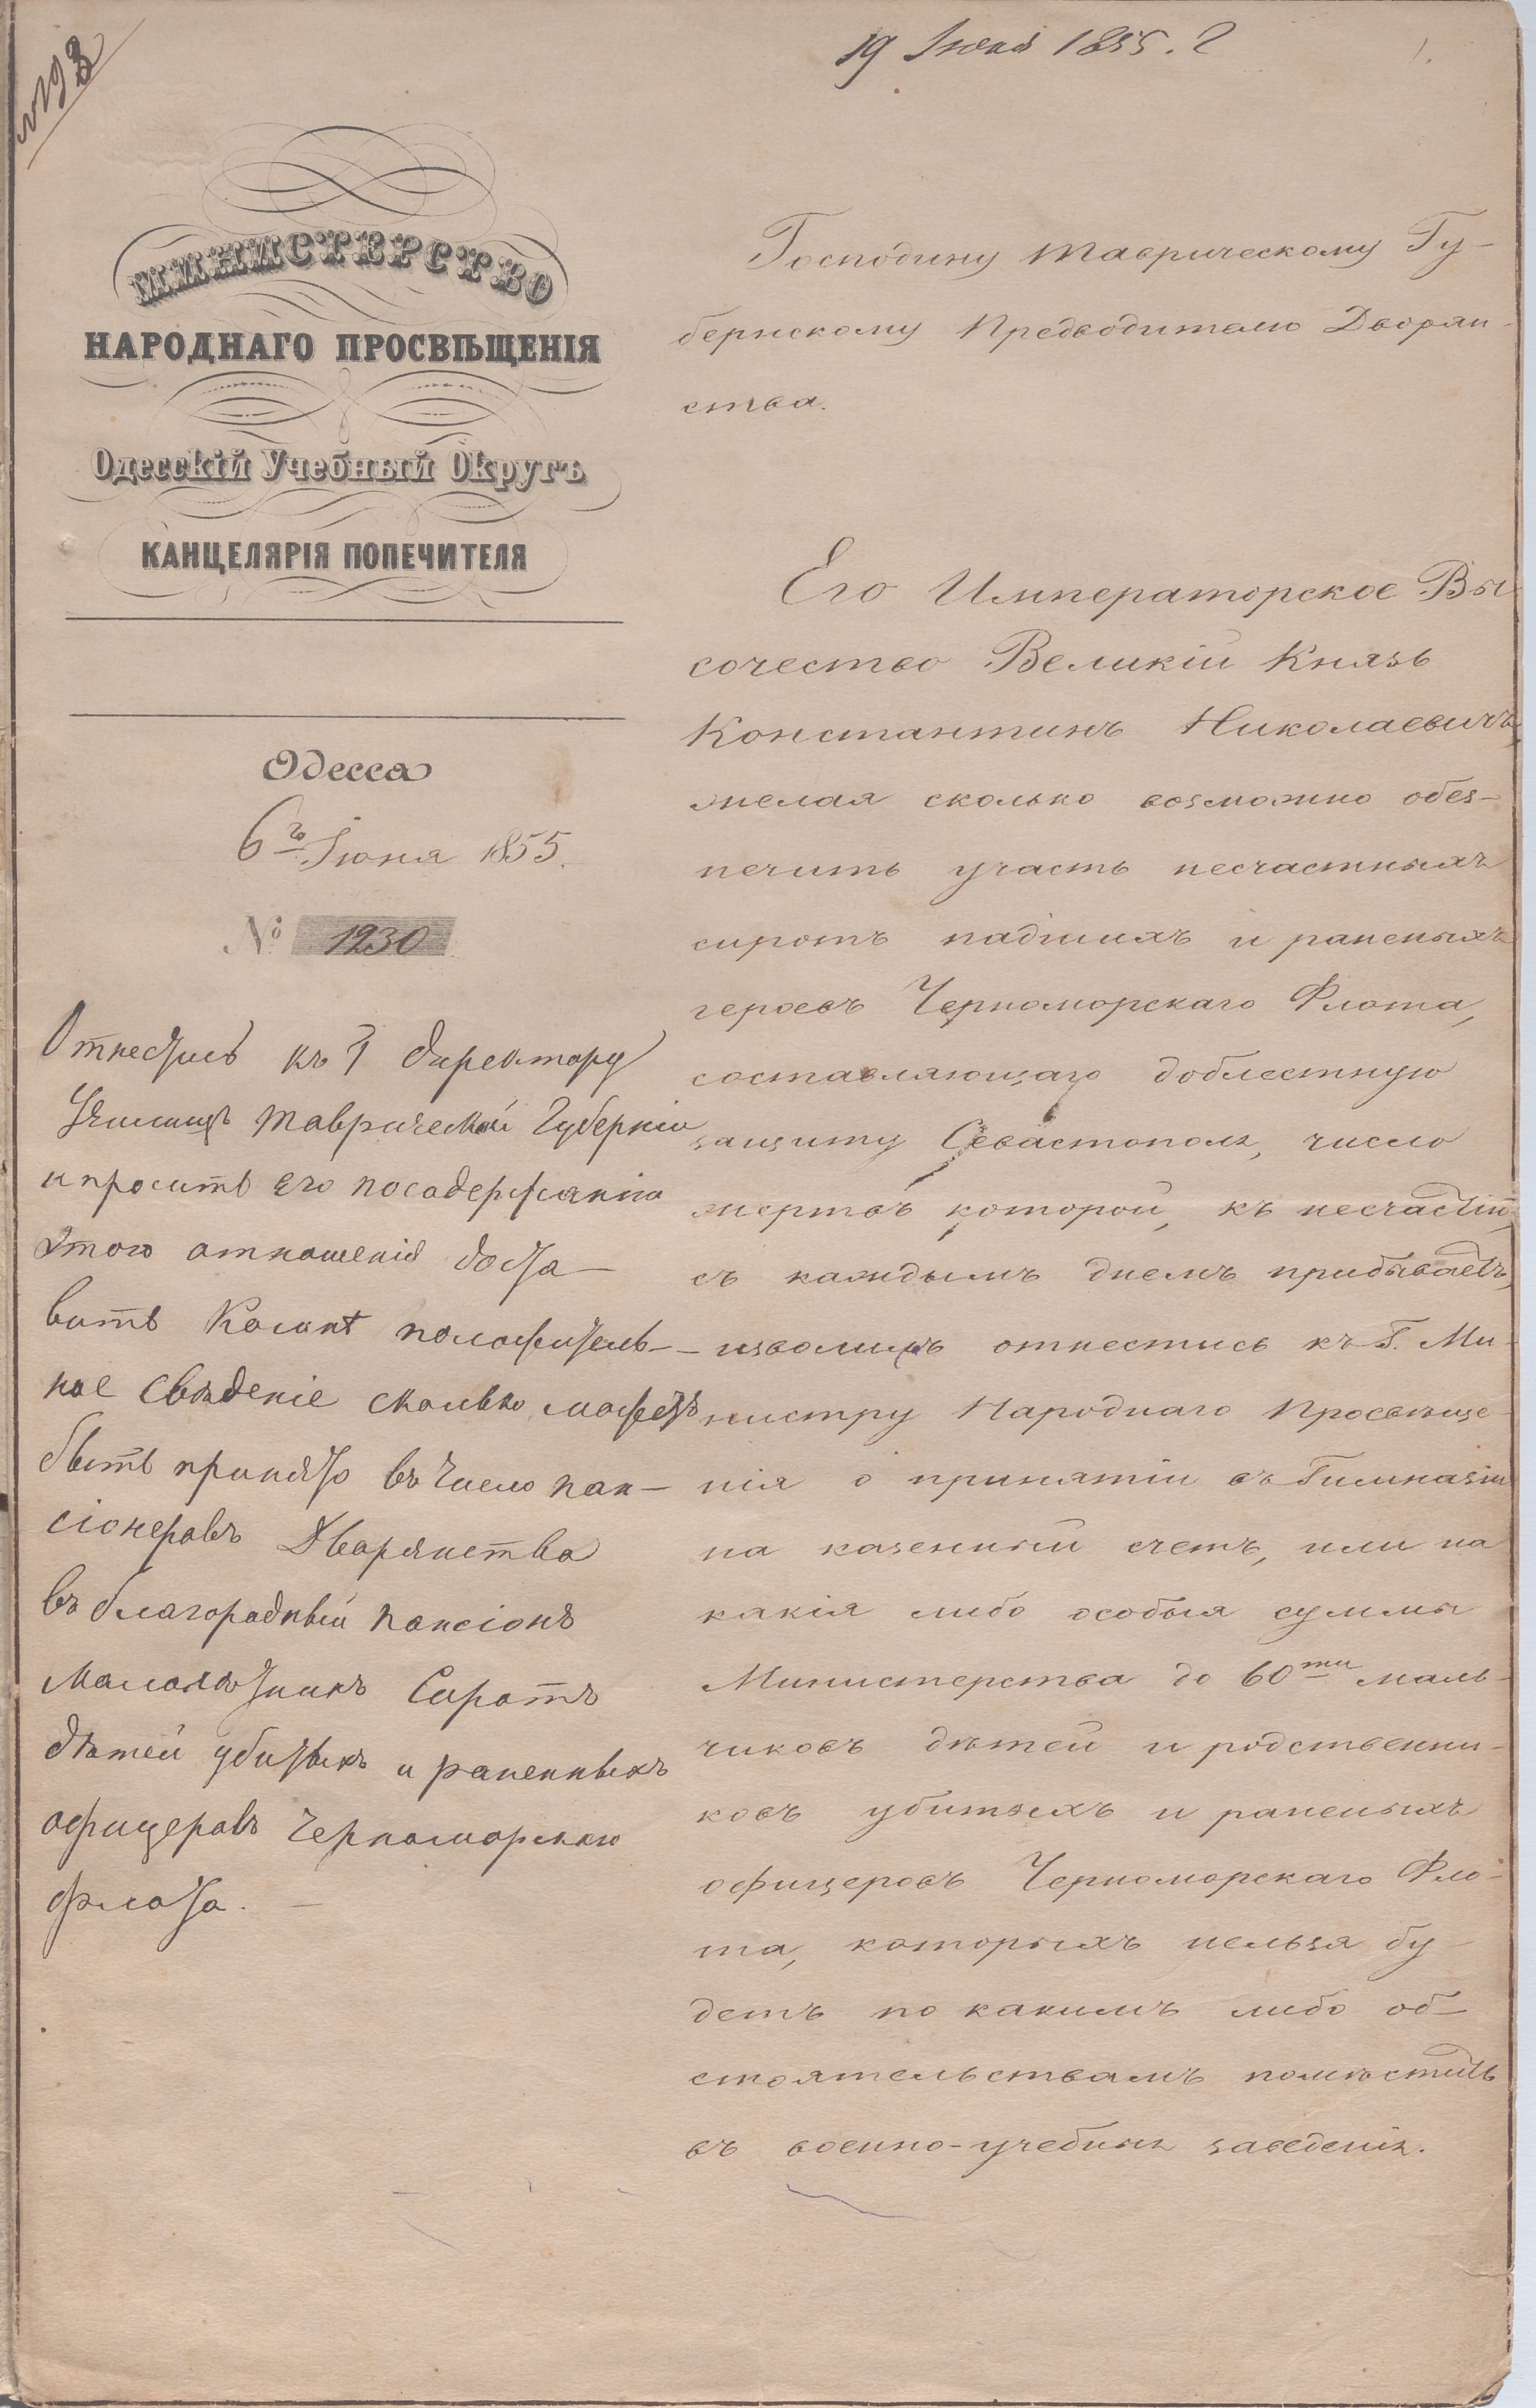 19 Июня 1855. г
1.
№ 193
МИНИСТЕРСТВО
НАРОДНАГО ПРОСВѢЩЕНІЯ
Одесскій Учебный Округъ
КАНЦЕЛЯРІЯ ПОПЕЧИТЕЛЯ
Одесса
6го Іюня 1855.
№ 1230
Отнестись къ Г директору
Училищъ Таврической Губерніи
и просить его по содержанію
этого отношенія доста
вить положитель-
ное свѣденіе сколько можетъ
быть принято въ число пан-
сіонеровъ Дворянства
въ благородный пансіонъ
малолѣтнихъ Сиротъ
дѣтей убитыхъ и раненныхъ
офицеровъ Черноморскаго
флота. —
Господину Таврическому Гу-
бернскому Предводителю Дворян-
ства.
Его Императорское Вы
сочество Великій Князь
Константинъ Николаевичъ,
желая сколько возможно обез-
печить участь несчастныхъ
сиротъ падшихъ и раненыхъ
героевъ Черноморскаго Флота,
составляющаго доблестную
защиту Севастополя, число
жертвъ которой, къ несчастію,
съ каждымъ днемъ прибываетъ,
изволилъ отнестись къ Г. Ми-
нистру Народнаго Просвѣще-
нія о принятіи въ Гимназіи
на казенный счетъ, или на
какія либо особыя суммы
Министерства до 60ти маль-
чиковъ дѣтей и родственни-
ковъ убитыхъ и раненыхъ
офицеровъ Черноморскаго Фло-
та, которыхъ нельзя бу-
детъ по какимъ либо об-
стоятельствамъ помѣстить
въ военно-учебныя заведенія.